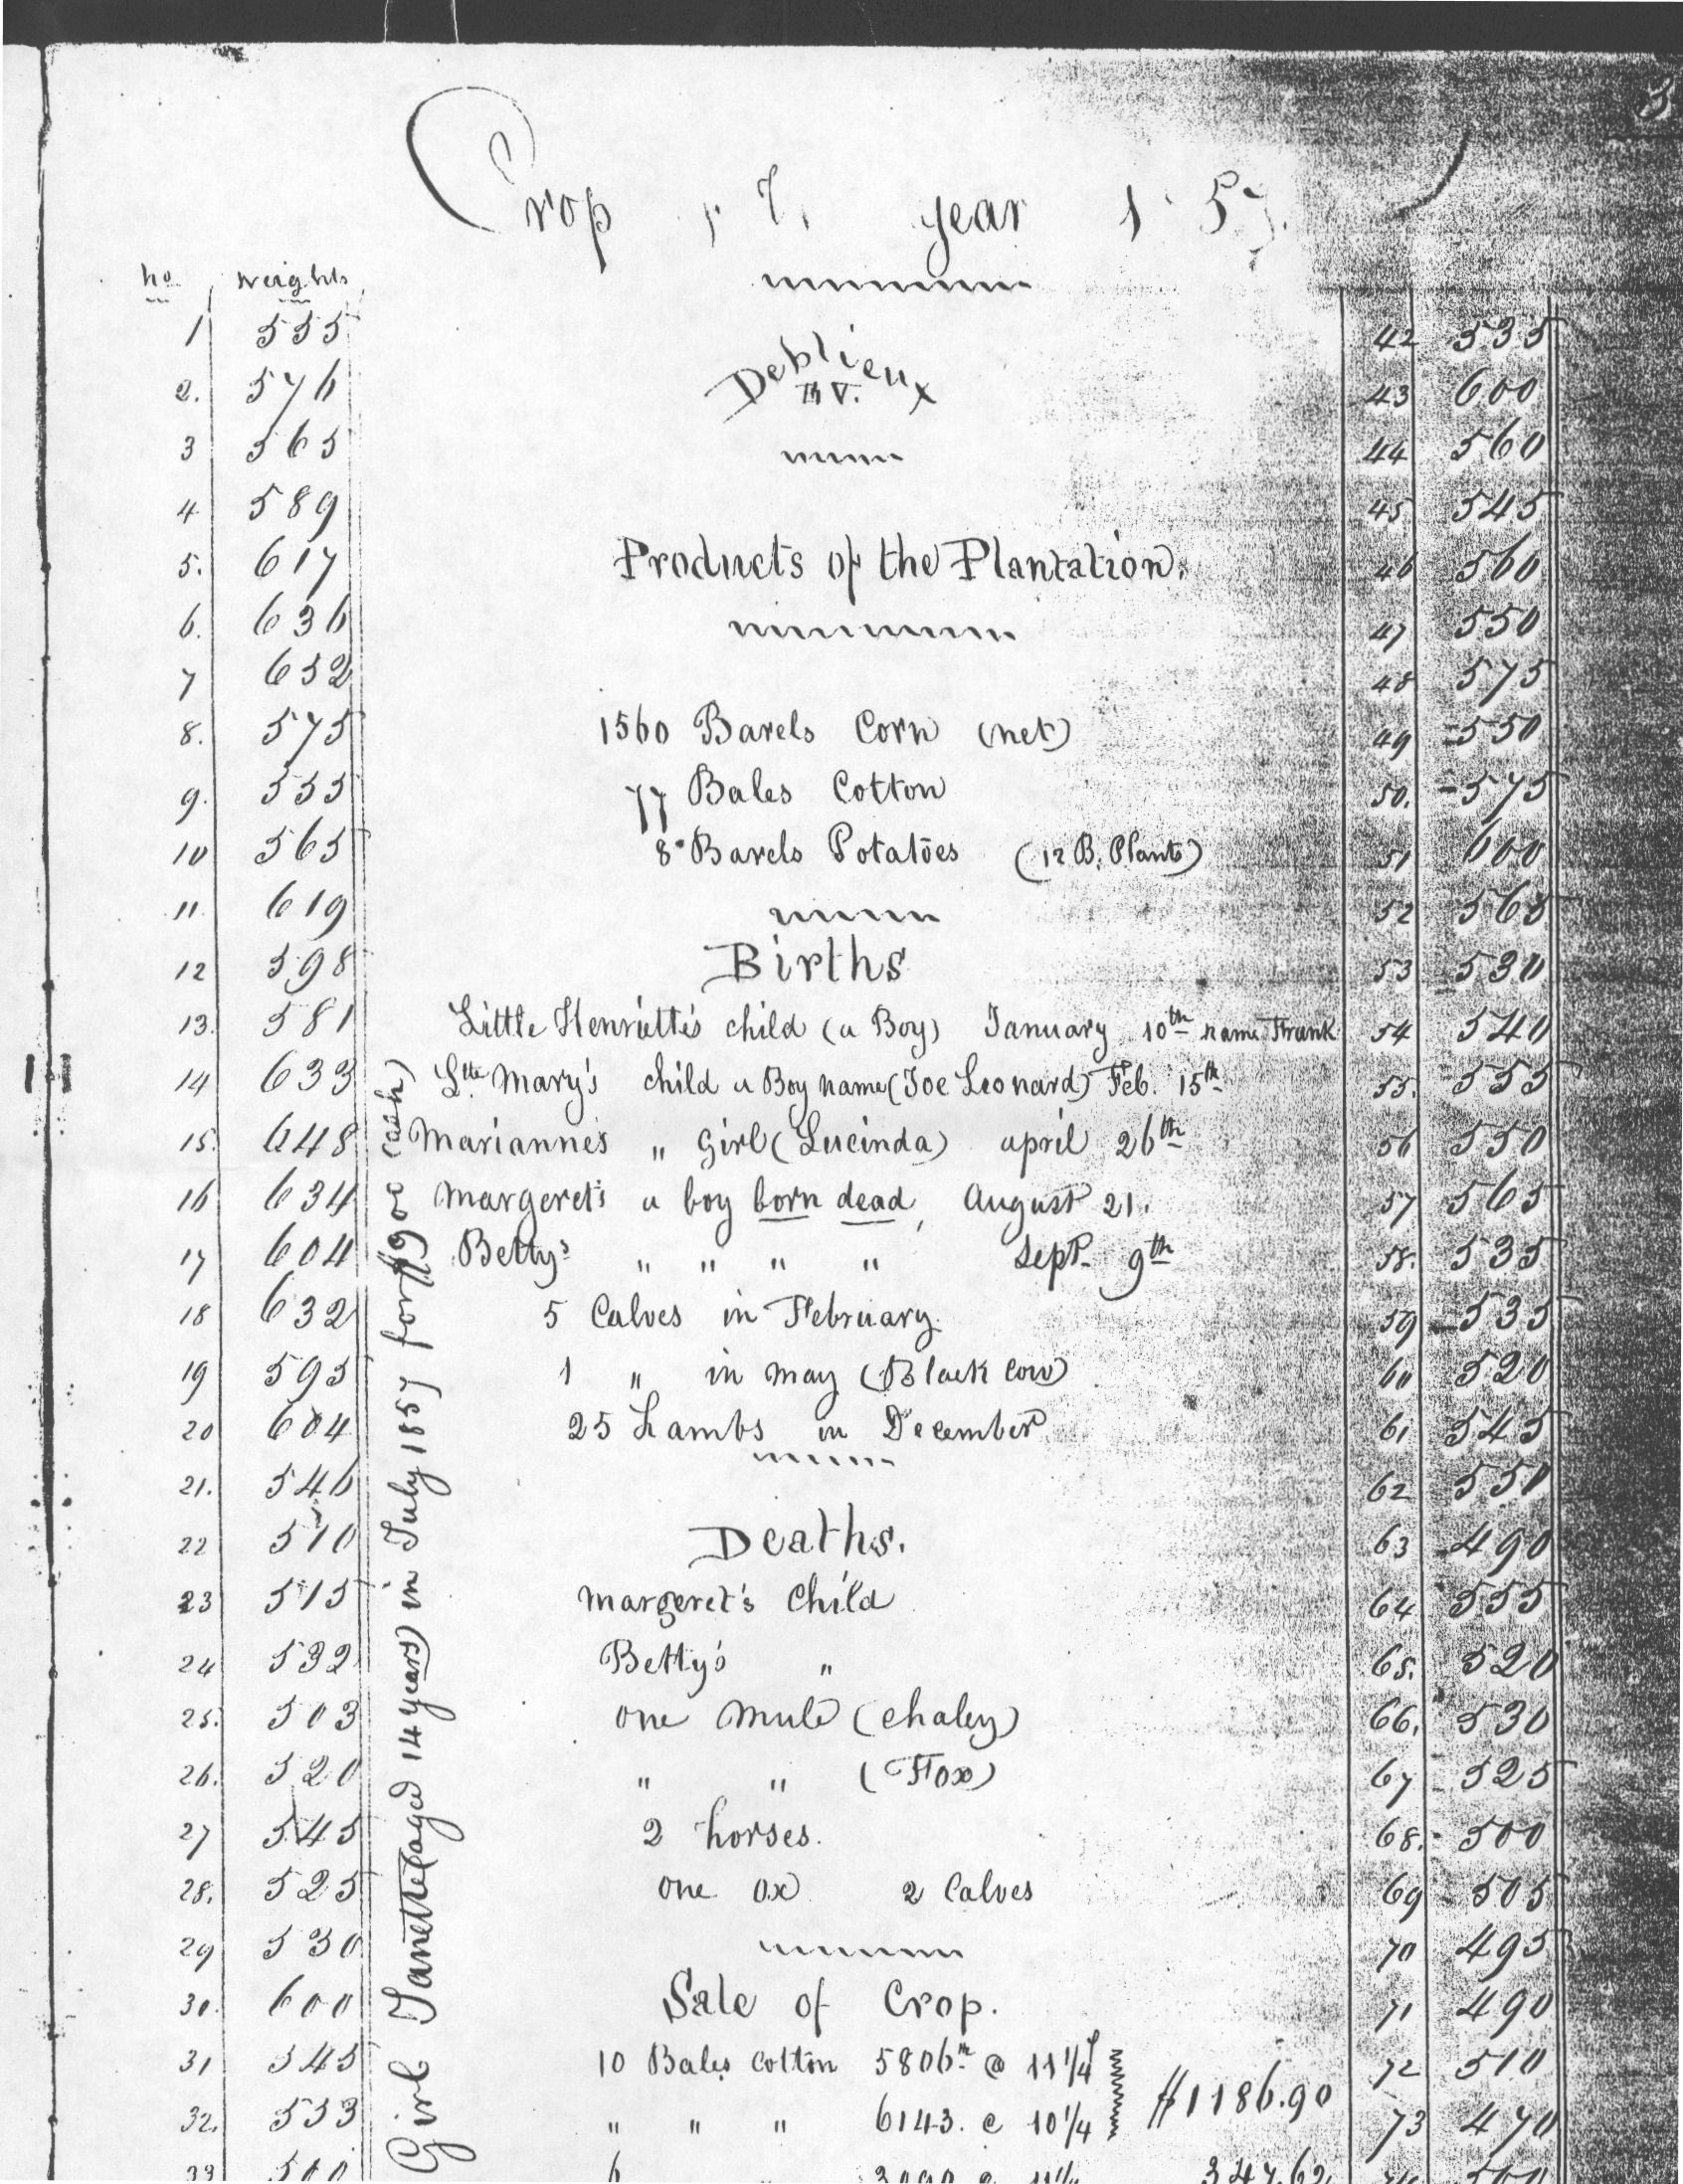 3
Crop year 1 57.
no. weights
1 555
2. 576
3 565
4 589
5. 617
6. 636
7 632
8. 575
9. 555
10 565
11. 619
12 598
13. 581
14 633
15. 648
16 634
17 604
18 632
19 595
20 604
21. 546
22 510
23 515
24 532
25. 503
26. 520
27 545
28. 525
29 530
30. 600
31 545
32. 533
33 500
Girl Janette (aged 14 years) in July 1857 for $900 cash)
Deblieux
Products of the Plantation.
1560 Barels Corn (net)
77 Bales Cotton
8 Barels Potatoes (12 B. Plants)
Births
Little Henriette's child (a Boy) January 10th name Frank
Lttle Mary's child a Boy name (Joe Leonard) Feb. 15th
Marianne's " Girl (Lucinda) april 26th
Margeret's a boy born dead, August 21.
Betty's " " " " Sept. 9th
5 Calves in February.
1 " in may (Black Cow)
25 Lambs in December
Deaths.
Margeret's Child
Betty's "
one Mule (Chaley)
" " (Fox)
2 horses.
one ox 2 Calves
Sale of Crop.
10 Bales Cotton 5806 @ 11 1/4
" " " 6143. @ 10 1/4
$1186.90
6 " 3090 @ 11 1/4 347.62
42 535
43 600
44 560
45 545
46 560
47 550
48 575
49 550
50. 575
51 600
52 565
53 530
54 540
55. 555
56 550
57 565
58. 535
59 535
60 520
61 545
62 550
63 490
64 555
65. 520
66. 530
67 525
68. 500
69 505
70 495
71 490
72 510
73 470